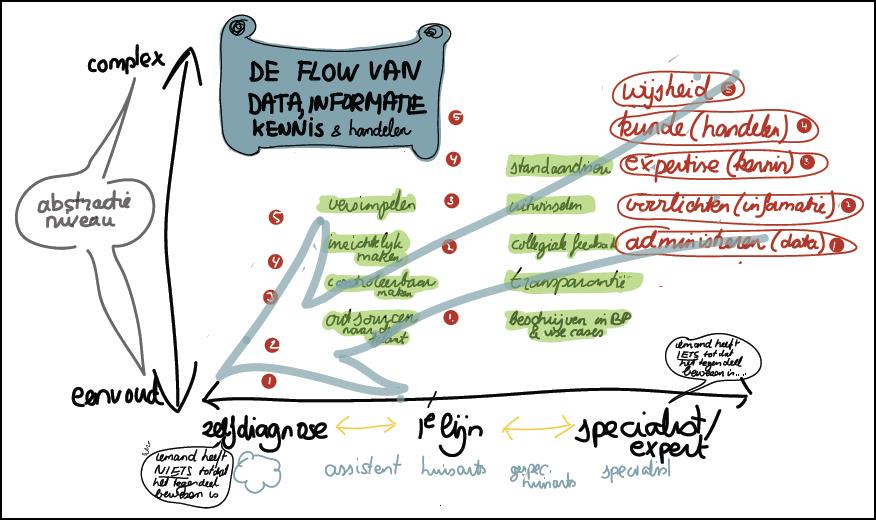 DE FLOW VAN
DATA, INFORMATIE
KENNIS & handelen
complex
abstractie
niveau
eenvoud
5
4
3
2
1
wijsheid 5
kunde (handelen) 4
expertise (kennis) 3
voorlichten (informatie) 2
administreren (data) 1
5
4
3
2
1
versimpelen
inzichtelijk
maken
controleerbaar
maken
outsourcen
naar de
standaardiseren
uitwisselen
collegiale feedback
transparantie
beschrijven in BP
& use cases
iemand heeft
IETS totdat
het tegendeel
bewezen is....
zelfdiagnose
1e lijn
specialist/
expert
iemand heeft
NIETS totdat
het tegendeel
bewezen is
assistent
huisarts
gespec.
huisarts
specialist